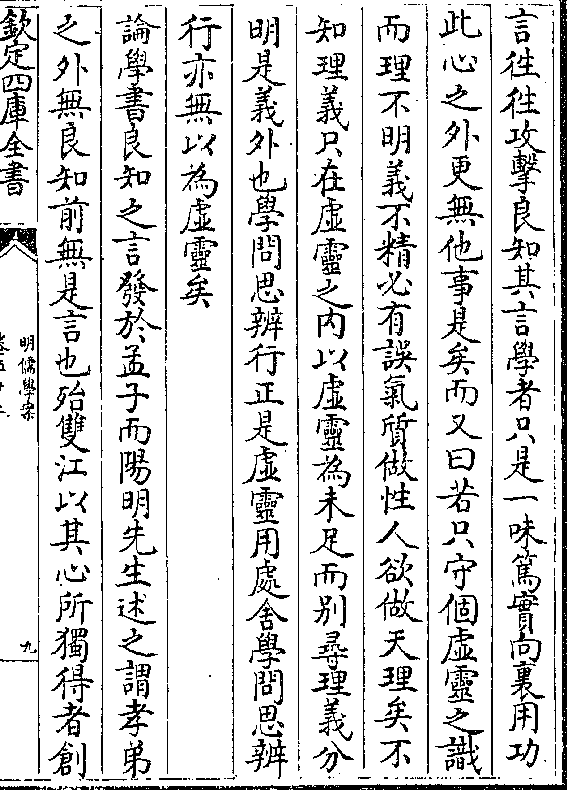 言徃徃攻擊良知其言學者只是一味篤實向裏用功
此心之外更無他事是矣而又曰若只守個虛靈之識
而理不明義不精必有誤氣質做性人欲做天理矣不
知理義只在虛靈之内以虛靈為未足而别尋理義分
明是義外也學問思辨行正是虛靈用處舍學問思辨
行亦無以為虛靈矣
論學書良知之言發於孟子而陽明先生述之謂孝弟
之外無良知前無是言也殆雙江以其心所獨得者創
欽定四庫全書
明儒學案
九